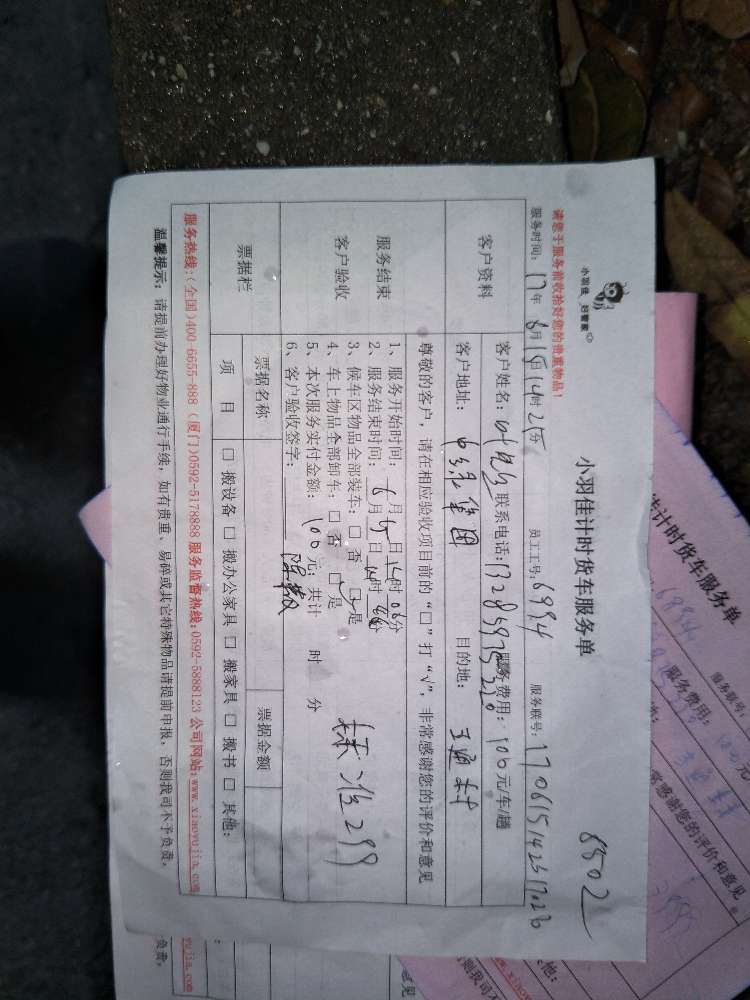 8502
小羽佳 好管家
小羽佳计时货车服务单
请您于服务前收拾好您的贵重物品！
服务时间：17年6月15日14时25分 员工工号：6994 服务联号：
客户资料
客户姓名： 联系电话：13285975220 服务费用：100元/车/趟
客户地址： 集团 目的地：
尊敬的客户，请在相应验收项目前的“□”打“√”，非常感谢您的评价和意见
服务结束
客户验收
1、服务开始时间：6月 日14时06分
2、服务结束时间：6月15日 时 分
3、候车区物品全部装车：□ 否 □ 是
4、车上物品全部卸车：□ 否 □ 是
5、本次服务实付金额：100元；共计 时 分
6、客户验收签字：
299
票据栏
票据名称 票据金额
项 目 □ 搬设备 □ 搬办公家具 □ 搬家具 □ 搬书 □ 其他：
服务热线：（全国）400-6655-888（厦门）0592-5178888 服务监督热线：0592-5888123 公司网站：www.xiaoyujia.com
温馨提示：请提前办理好物业通行手续，如有贵重、易碎或其它特殊物品请提前申报，否则我司不予负责。
佳计时货车服务单
服务联号：
服务费用：
感谢您的评价和意见
其他：
yujia.com
负责。